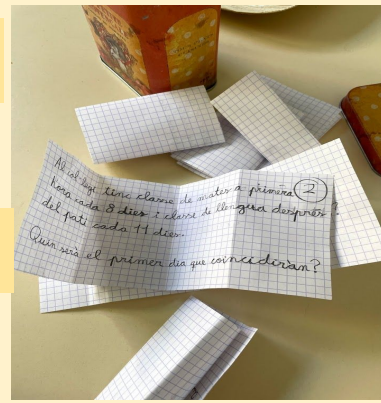 Al col·legi tinc classe de mates a primera 2
hora cada 8 dies i classe de llengua després
del pati cada 11 dies.
Quin serà el primer dia que coincidiran?